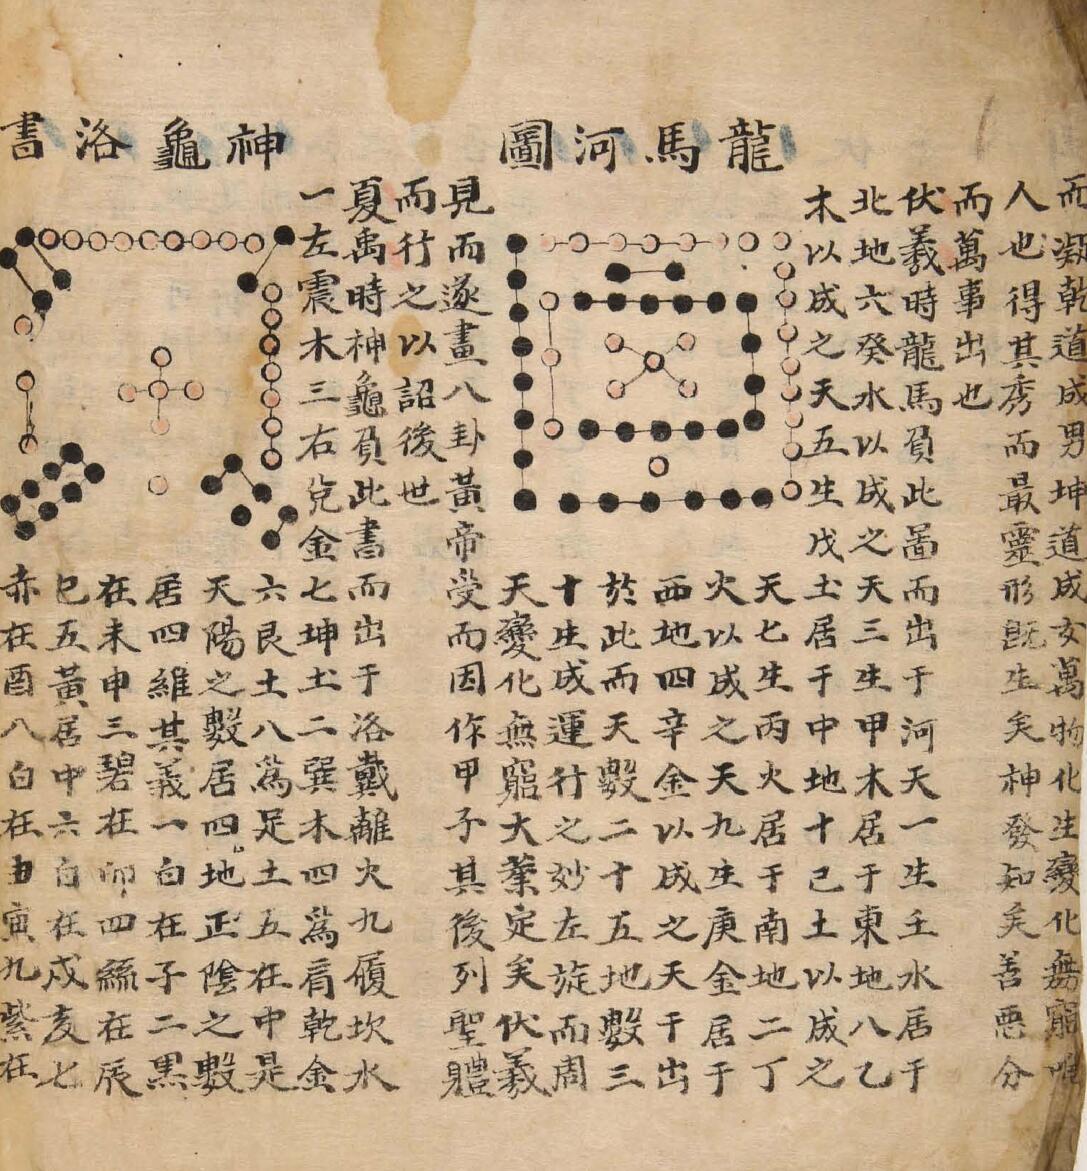 龍馬河圖
而凝乾道成男坤道成女萬物化生變化無窮唯
人也得其秀而最靈形既生矣神發知矣善惡分
而萬事出也
伏羲時龍馬負此啚而出于河天一生壬水居于
北地六癸水以成之天三生甲木居于東地八乙
木以成之天五生戊土居于中地十己土以成之
天七生丙火居于南地二丁
火以成之天九生庚金居于
西地四辛金以成之天干出
於此而天數二十五地數三
十生成運行之妙左旋而周
天變化無窮大業定矣伏羲
見而遂畫八卦黃帝受而因作甲子其後列聖體
而行之以詔後世
神龜洛書
夏禹時神龜負此書而出于洛戴離火九履坎水
一左震木三右兌金七坤土二巽木四爲肩乾金
六艮土八爲足土五在中是
天陽之數居四地正陰之數
居四維其義一白在子二黑
在未申三碧在卯四綠在辰
巳五黃居中六白在戌亥七
赤在酉八白在丑寅九紫在